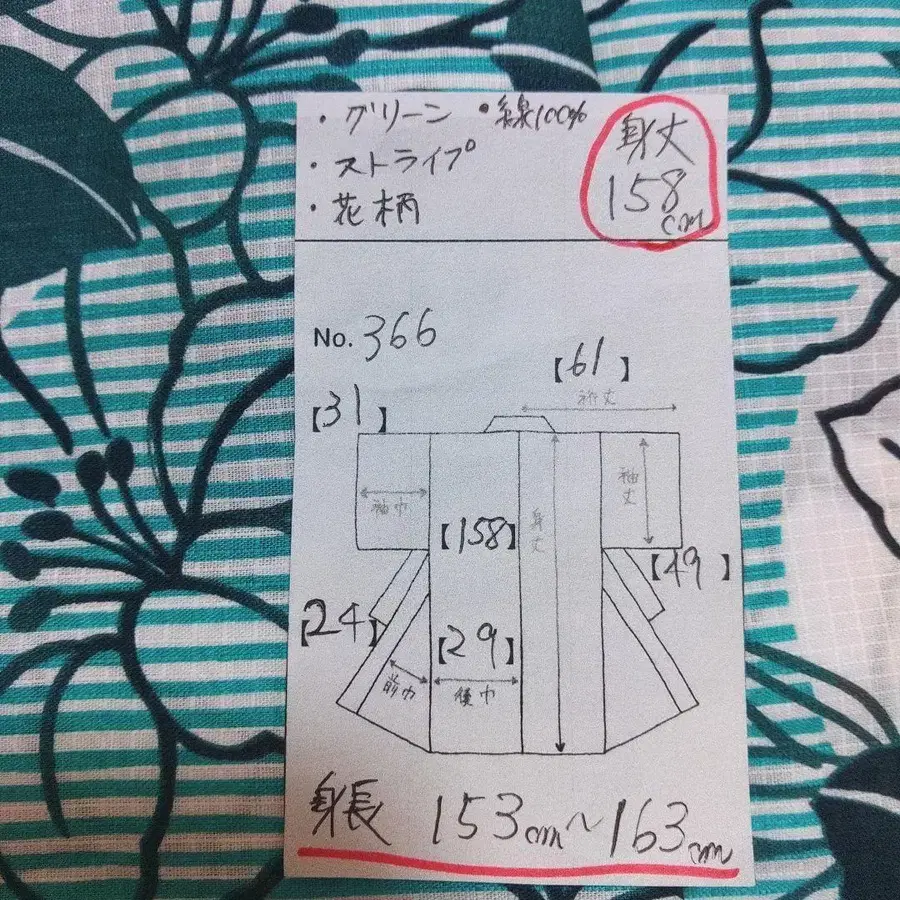 ・グリーン ・線100%
・ストライプ
・花柄
身丈
158
cm
No. 366
【61】
裄丈
【31】
袖巾
袖丈
身丈
【158】
【49】
【24】
【29】
前巾
後巾
身長 153cm～163cm